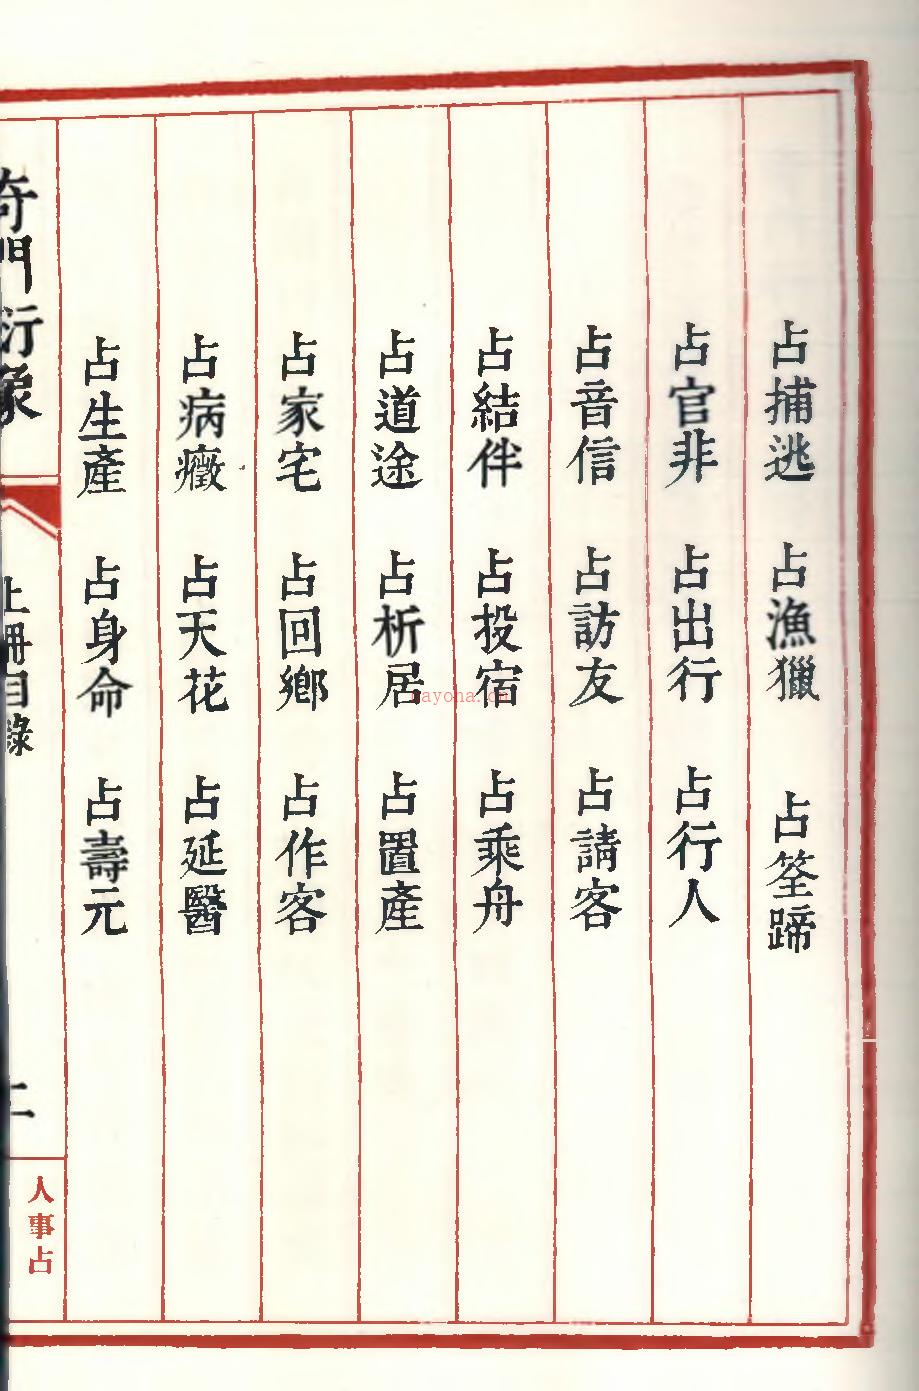 占捕逃 占漁獵 占筌蹄
占官非 占出行 占行人
占音信 占訪友 占請客
占結伴 占投宿 占乘舟
占道途 占析居 占置產
占家宅 占回鄉 占作客
占病癥 占天花 占延醫
占生產 占身命 占壽元
奇門衍象
上冊目錄
二
人事占